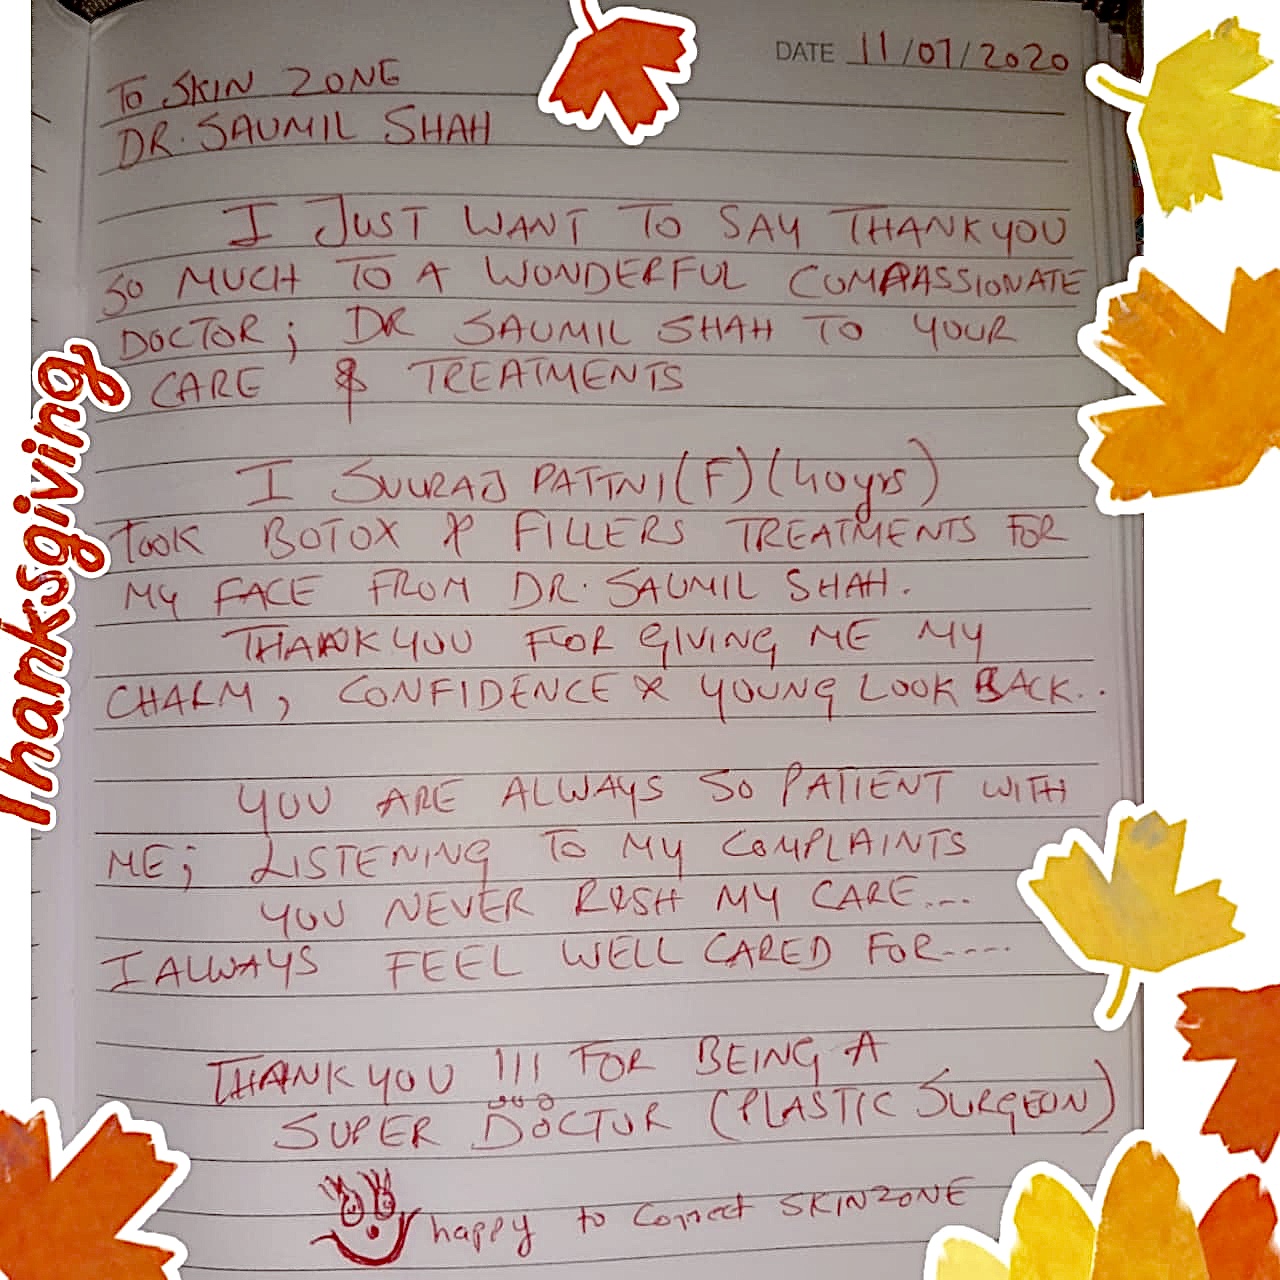 DATE 11/07/2020
TO SKIN ZONE
DR. SAUMIL SHAH
I JUST WANT TO SAY THANKYOU
SO MUCH TO A WONDERFUL COMPASSIONATE
DOCTOR; DR SAUMIL SHAH TO YOUR
CARE & TREATMENTS
I SUURAJ PATTNI (F) (40yrs)
TOOK BOTOX & FILLERS TREATMENTS FOR
MY FACE FROM DR. SAUMIL SHAH.
THANKYOU FOR GIVING ME MY
CHARM, CONFIDENCE & YOUNG LOOK BACK..
YOU ARE ALWAYS SO PATIENT WITH
ME; LISTENING TO MY COMPLAINTS
YOU NEVER RUSH MY CARE....
I ALWAYS FEEL WELL CARED FOR-----
THANKYOU !!! FOR BEING A
SUPER DOCTOR (PLASTIC SURGEON)
happy to Connect SKINZONE
Thanksgiving